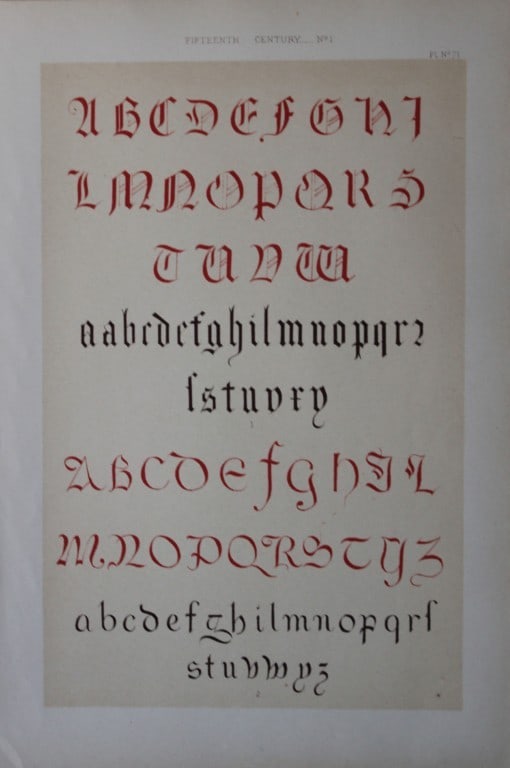 FIFTEENTH CENTURY__ Nº1
PL.Nº21
A B C D E F G H I
L M N O P Q R S
T U V W
a a b c d e f g h i l m n o p q r ꝛ
ſ s t u v x y
A B C D E f G H S L
M N O P Q R S T Y Z
a b c d e f g h i l m n o p q r ſ
s t u v w y z